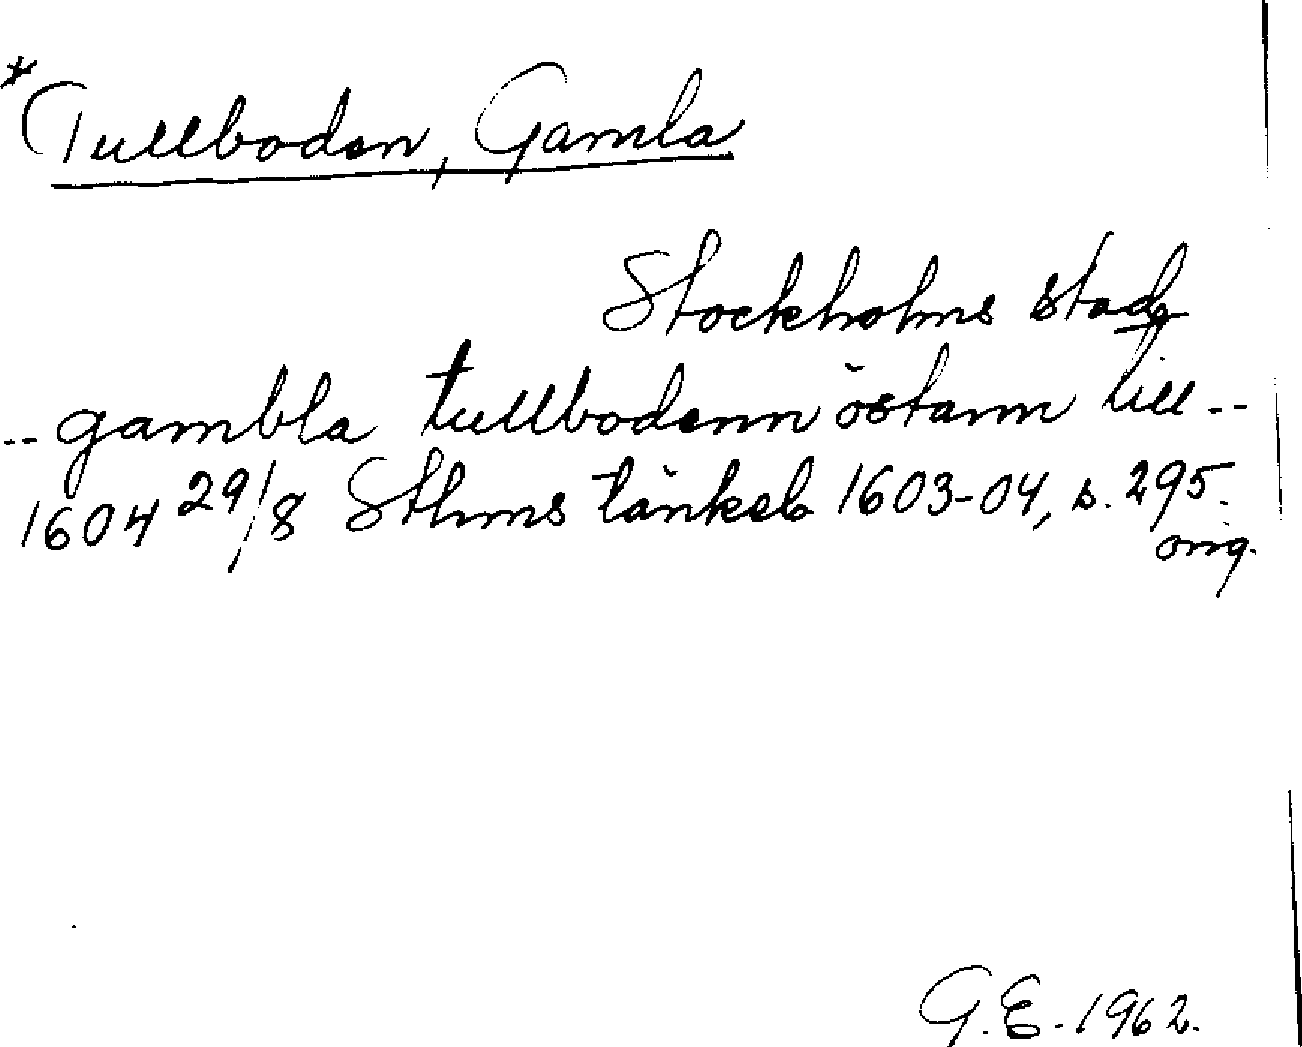 *Tullboden, Gamla
Stockholms stad
-- gambla tullbodenn östann till --
1604 29/8 Sthms tänkeb 1603-04, s. 295.
orig.
G.E. 1962.